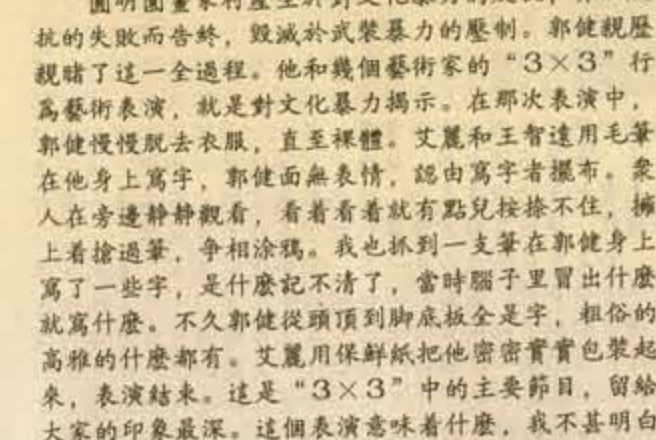 圓明園畫家村産生於對文化暴力的
抗的失敗而告終，毀滅於武裝暴力的壓制。郭健親歷
親睹了這一全過程。他和幾個藝術家的“3×3”行
爲藝術表演，就是對文化暴力揭示。在那次表演中，
郭健慢慢脱去衣服，直至裸體。艾麗和王智遠用毛筆
在他身上寫字，郭健面無表情，認由寫字者擺布。衆
人在旁邊静静觀看，看着看着就有點兒按捺不住，擁
上着搶過筆，争相涂鴉。我也抓到一支筆在郭健身上
寫了一些字，是什麽記不清了，當時腦子里冒出什麽
就寫什麽。不久郭健從頭頂到脚底板全是字，粗俗的
高雅的什麽都有。艾麗用保鮮紙把他密密實實包裝起
來，表演結束。這是“3×3”中的主要節目，留給
大家的印象最深。這個表演意味着什麽，我不甚明白